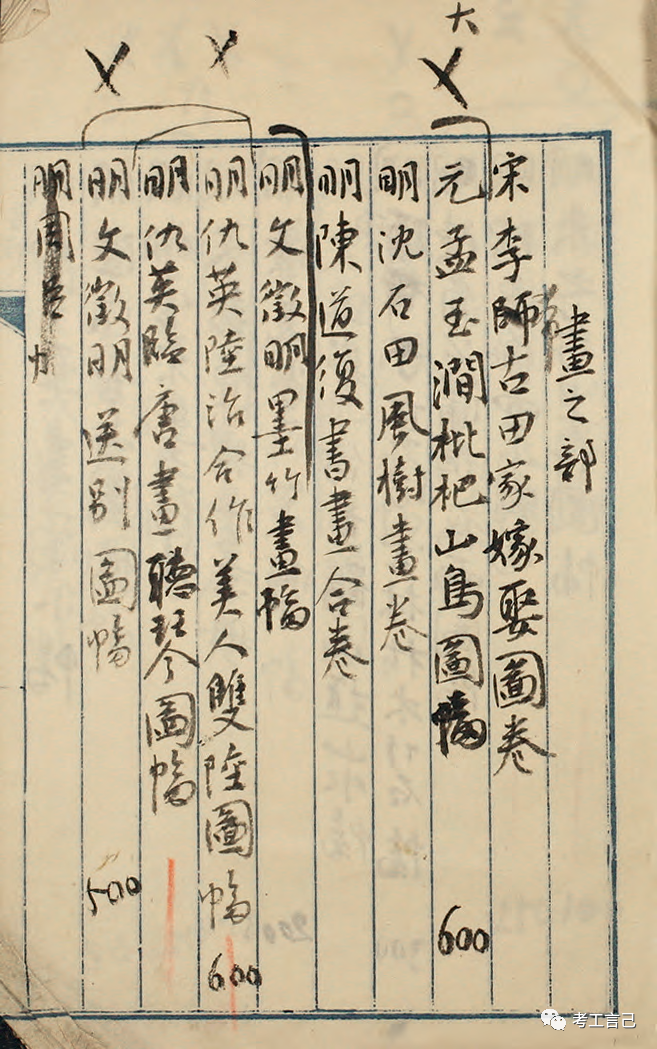 大
畫之部
宋李師古田家嫁娶圖卷
元孟玉澗枇杷山鳥圖幅
600
明沈石田風樹畫卷
明陳道復書畫合卷
明文徵明墨竹畫幅
明仇英陸治合作美人雙陸圖幅
600
明仇英臨唐畫聽琴圖幅
明文徵明送別圖幅
500
明周
考工言己